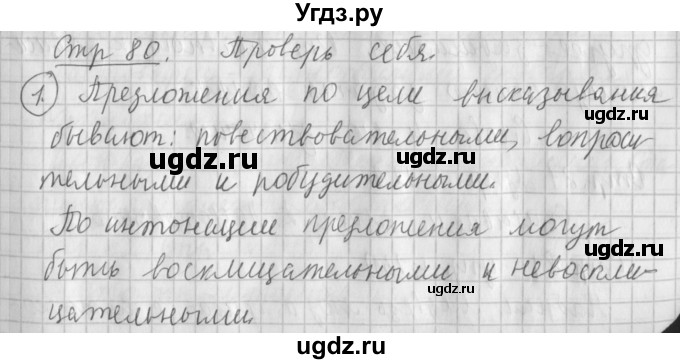 Угдз.ру
Стр 80. Проверь себя.
1. Предложения по цели высказывания
бывают: повествовательными, вопроси
тельными и побудительными.
По интонации предложения могут
быть восклицательными и невоскли-
цательными.
ugdz.ru
ugdz.ru
ugdz.ru
ugdz.ru
ugdz.ru
ugdz.ru
ugdz.ru